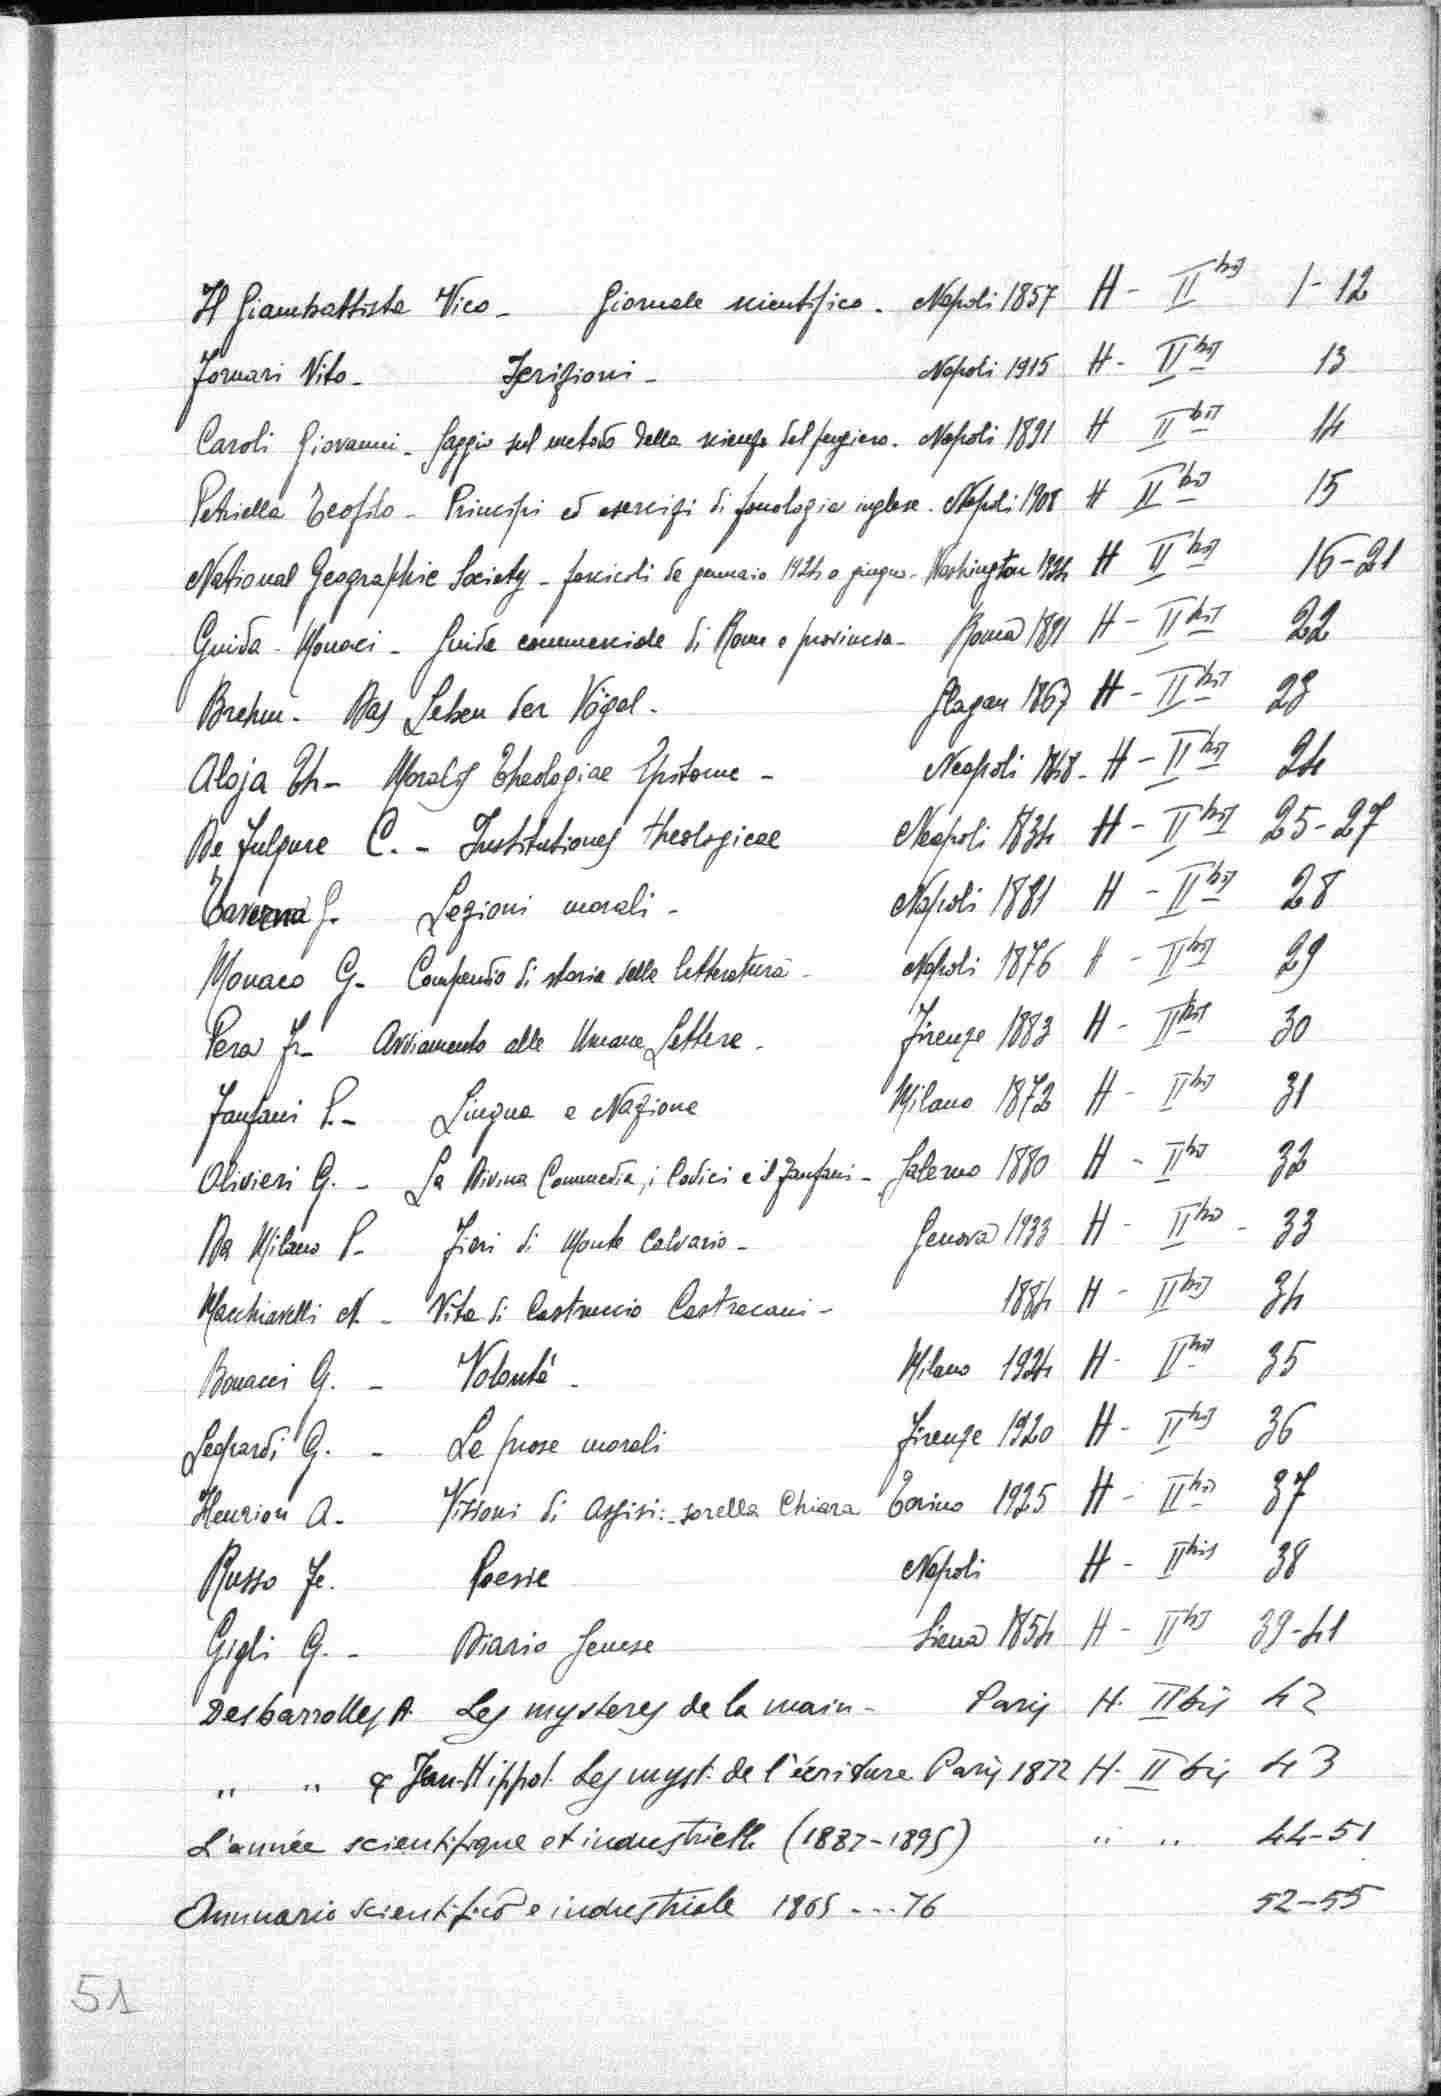 Il Giambattista Vico - Giornale scientifico - Napoli 1857 H - II bis 1-12
Fornari Vito - Iscrizioni - Napoli 1915 H - II bis 13
Caroli Giovanni - Saggio sul metodo della scienza del pensiero - Napoli 1891 H II bis 14
Petriella Teofilo - Principi ed esercizi di fonologia inglese - Napoli 1908 H II bis 15
National Geographic Society - fascicoli da gennaio 1924 a giugno - Washington 1924 H II bis 16-21
Guida - Monaci - Guida commerciale di Roma e provincia - Roma 1891 H - II bis 22
Brehm - Das Leben der Vögel - 1867 H - II bis 23
Aloja Th - Moralis Theologiae Epitome - Neapoli 1848 - H - II bis 24
De Fulgure C. - Institutiones theologicae Neapoli 1834 H - II bis 25-27
Taverna G. Lezioni morali - Napoli 1881 H - II bis 28
Monaco G. Compendio di storia della letteratura - Napoli 1876 H - II bis 29
Pera Fr - Avviamento alle Umane Lettere - Firenze 1883 H - II bis 30
Fanfani P. - Lingua e Nazione Milano 1872 H - II bis 31
Olivieri G. - La Divina Commedia, i Codici e il Fanfani - Salerno 1880 H - II bis 32
Da Milano P - Fiori di Monte Calvario - Genova 1933 H - II bis - 33
Macchiavelli N. - Vita di Castruccio Castracani - 1884 H - II bis 34
Bonacci G. - Volontà - Milano 1924 H - II bis 35
Leopardi G. - Le prose morali Firenze 1920 H - II bis 36
Henrion A. Visioni di Assisi: sorella Chiara Torino 1925 H - II bis 37
Russo Fe. Poesie Napoli H - II bis 38
Gigli G. - Diario Senese Siena 1854 H - II bis 39-41
Desbarrolles A. Les mysteres de la main - Paris H. II bis 42
" " & Jean-Hippol. Les myst. de l'écriture Paris 1872 H. II bis 43
L'année scientifique et industrielle (1887-1895) " " 44-51
Annuario scientifico e industriale 1865 - - - 76 52-55
51